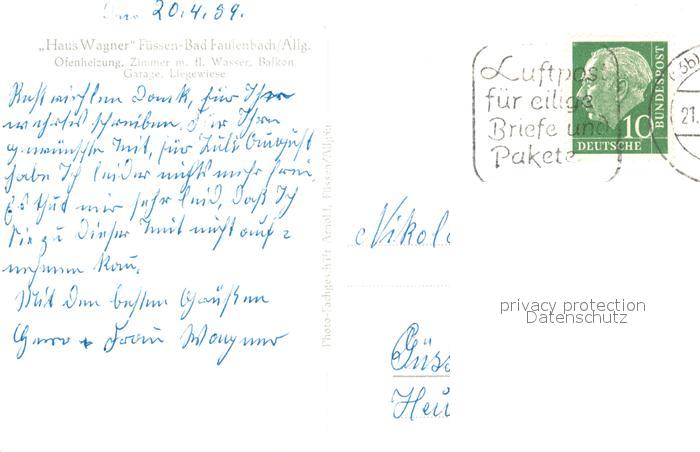 Den 20.4.59.
„Haus Wagner" Füssen-Bad Faulenbach/Allg.
Ofenheizung, Zimmer m. fl. Wasser, Balkon
Garage, Liegewiese
Recht vielen Dank, für Ihr
wehrtes schreiben. Für Ihre
gewünschte Zeit, für Juli August
habe Ich leider nichts mehr frei.
Es thut mir sehr leid, daß Ich
Sie zu dieser Zeit nicht auf =
nehmen kan.
Mit den besten Grüßen
Herr + Frau Wagner
Photo-Fachgeschäft Arnold, Füssen/Allgäu
Luftpost
für eilige
Briefe und
Pakete
10
DEUTSCHE
BUNDESPOST
21.
Nikola
Güss
Heu
privacy protection
Datenschutz